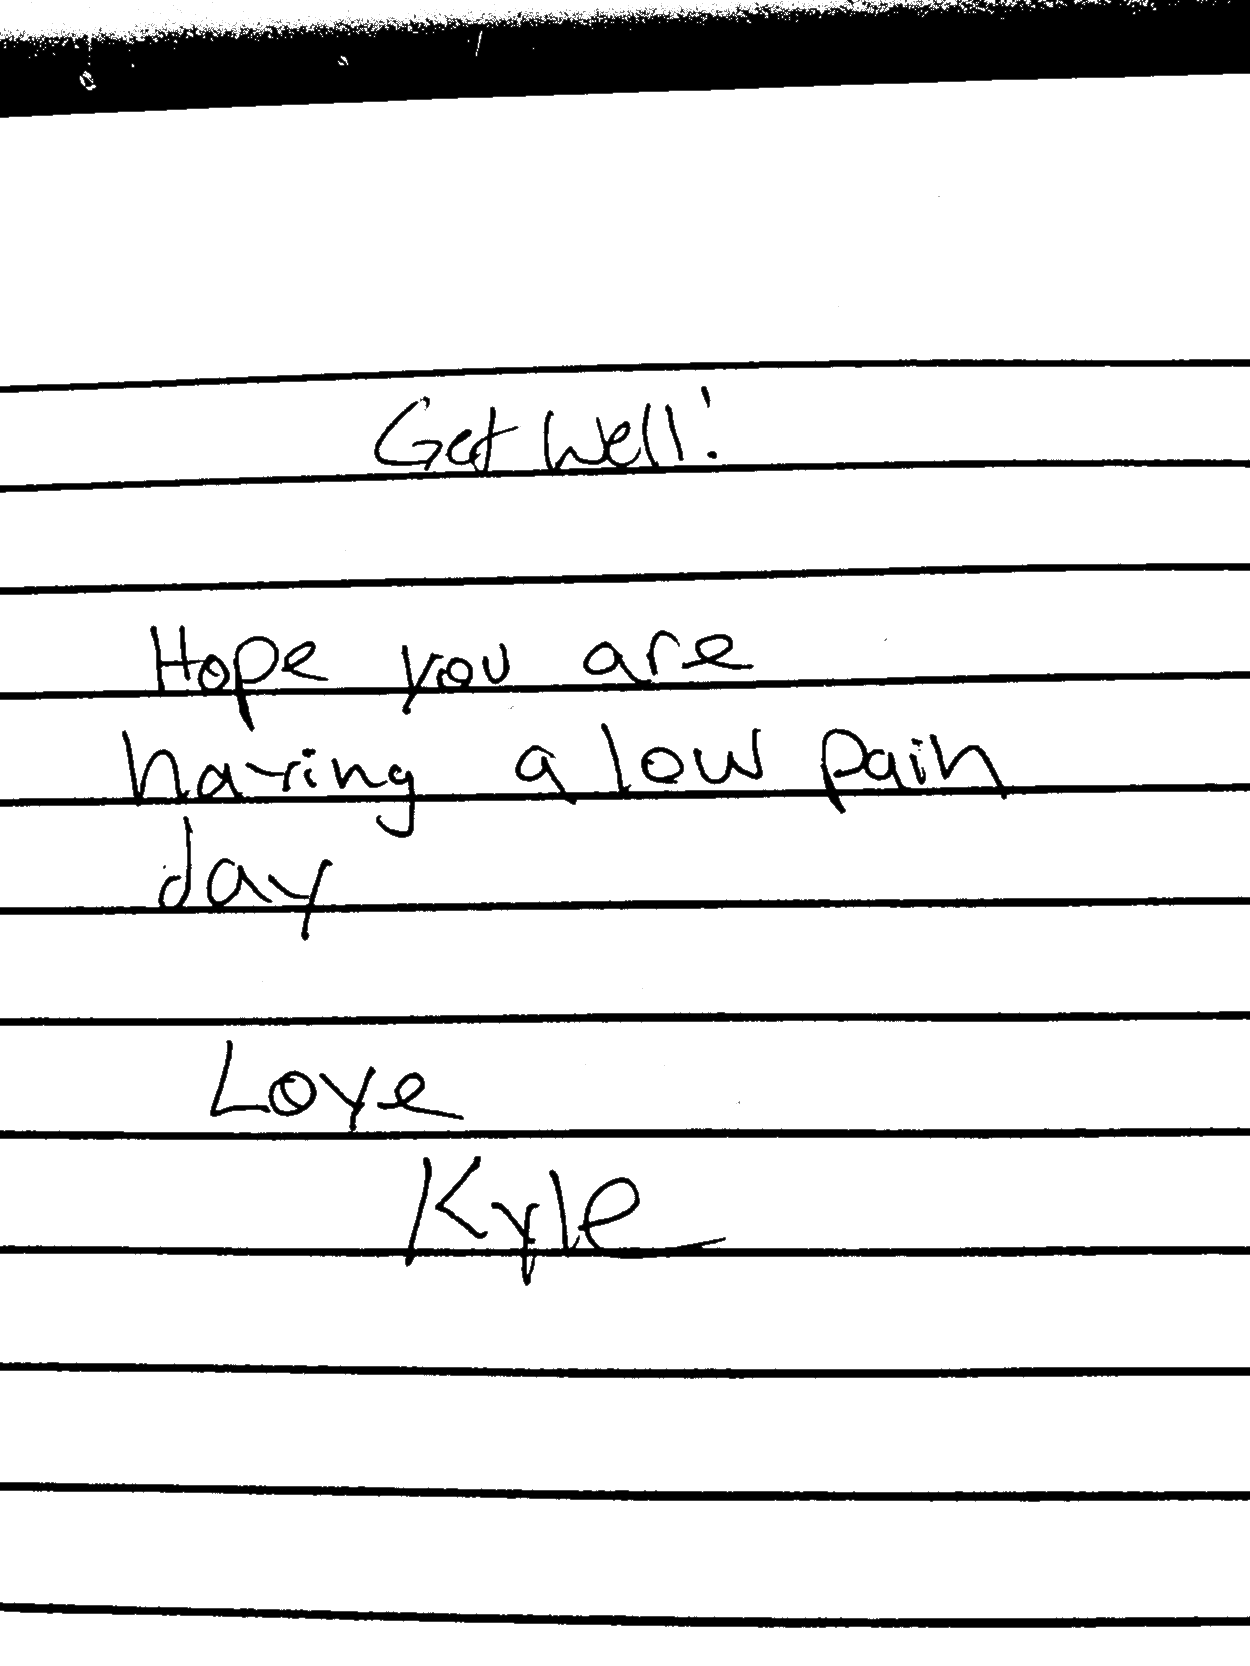 Get Well!
Hope you are
having a low pain
day
Love
Kyle